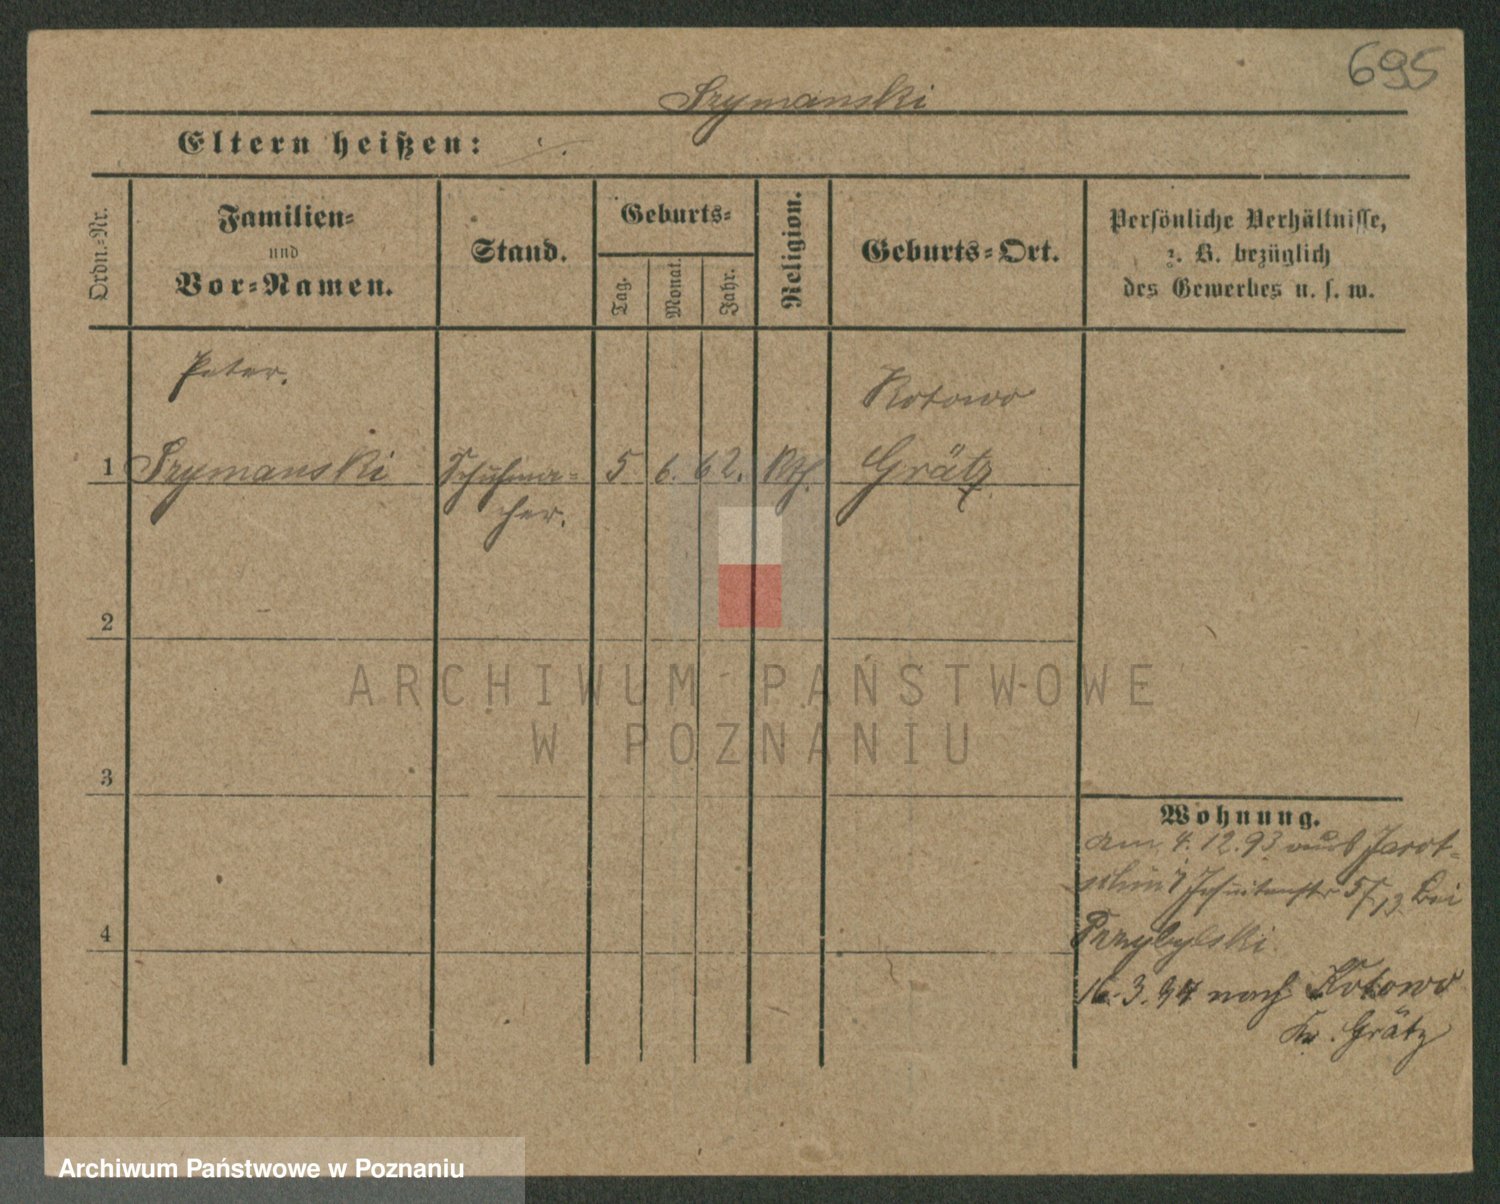 695
Szymanski
Eltern heißen:
Ordn.=Nr.
Familien=
und
Vor=Namen.
Stand.
Geburts=
Tag.
Monat.
Jahr.
Religion.
Geburts=Ort.
Persönliche Verhältnisse,
z. B. bezüglich
des Gewerbes u. s. w.
Peter.
Kotowo
1 Szymanski Schuhma= 5 6. 62. Kth. Grätz
cher.
2
ARCHIWUM PAŃSTWOWE
W POZNANIU
3
Wohnung.
am 4. 12. 93 aus Jarot=
schin Jesuitenstr 5/ 13 bei
4
Przybylski
16. 3. 94 nach Kotowo
Kr. Grätz
Archiwum Państwowe w Poznaniu